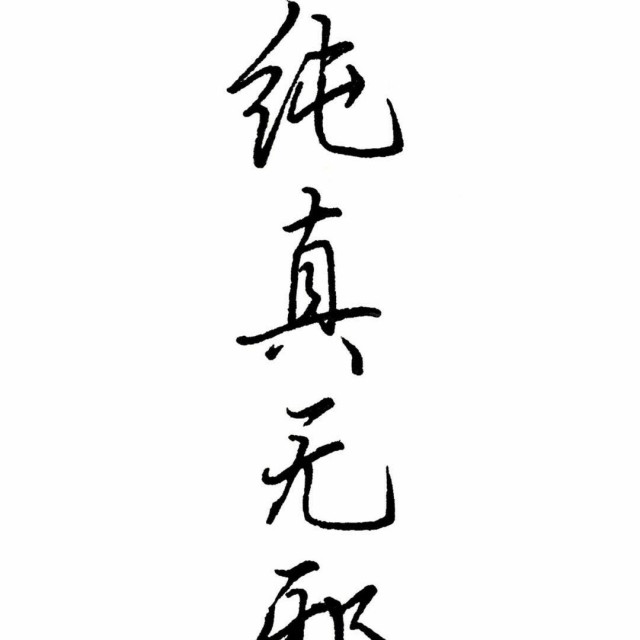 纯真无邪